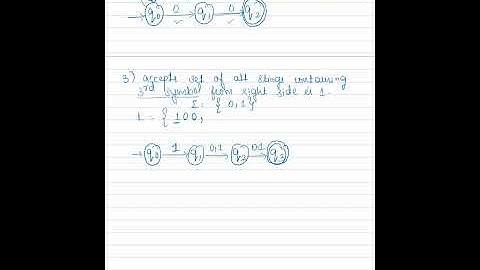 q0 0 q1 0 q2
3) accepts set of all strings containing
3rd symbol from right side is 1.
Σ = {0,1}
L = {100,
q0 1 q1 0,1 q2 0,1 q3